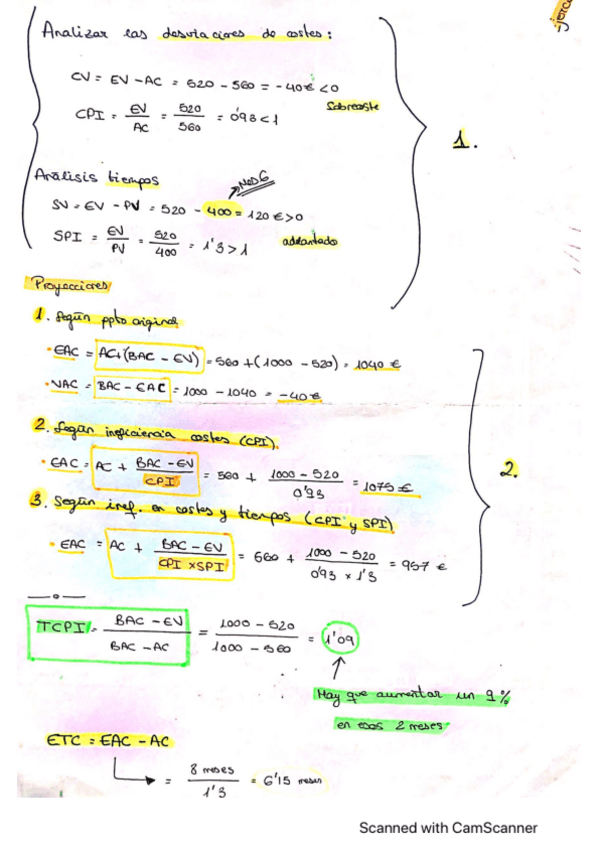 Analizar las desviaciones de costes:
CV = EV - AC = 520 - 560 = -40€ < 0
Sobrecoste
CPI = EV / AC = 520 / 560 = 0'93 < 1
1.
Análisis tiempos
Mes 6
SV = EV - PV = 520 - 400 = 120 € > 0
SPI = EV / PV = 520 / 400 = 1'3 > 1
adelantado
Proyecciones
1. Según ppto original
· EAC = AC + (BAC - EV) = 560 + (1000 - 520) = 1040 €
· VAC = BAC - EAC = 1000 - 1040 = -40€
2. Según ineficiencia costes (CPI).
· EAC = AC + BAC - EV / CPI = 560 + 1000 - 520 / 0'93 = 1075 €
2.
3. Según inef. en costes y tiempos (CPI y SPI)
· EAC = AC + BAC - EV / CPI x SPI = 560 + 1000 - 520 / 0'93 x 1'3 = 957 €
TCPI = BAC - EV / BAC - AC = 1000 - 520 / 1000 - 560 = 1'09
Hay que aumentar un 9%
en esos 2 meses
ETC = EAC - AC
= 8 meses / 1'3 = 6'15 meses
Scanned with CamScanner